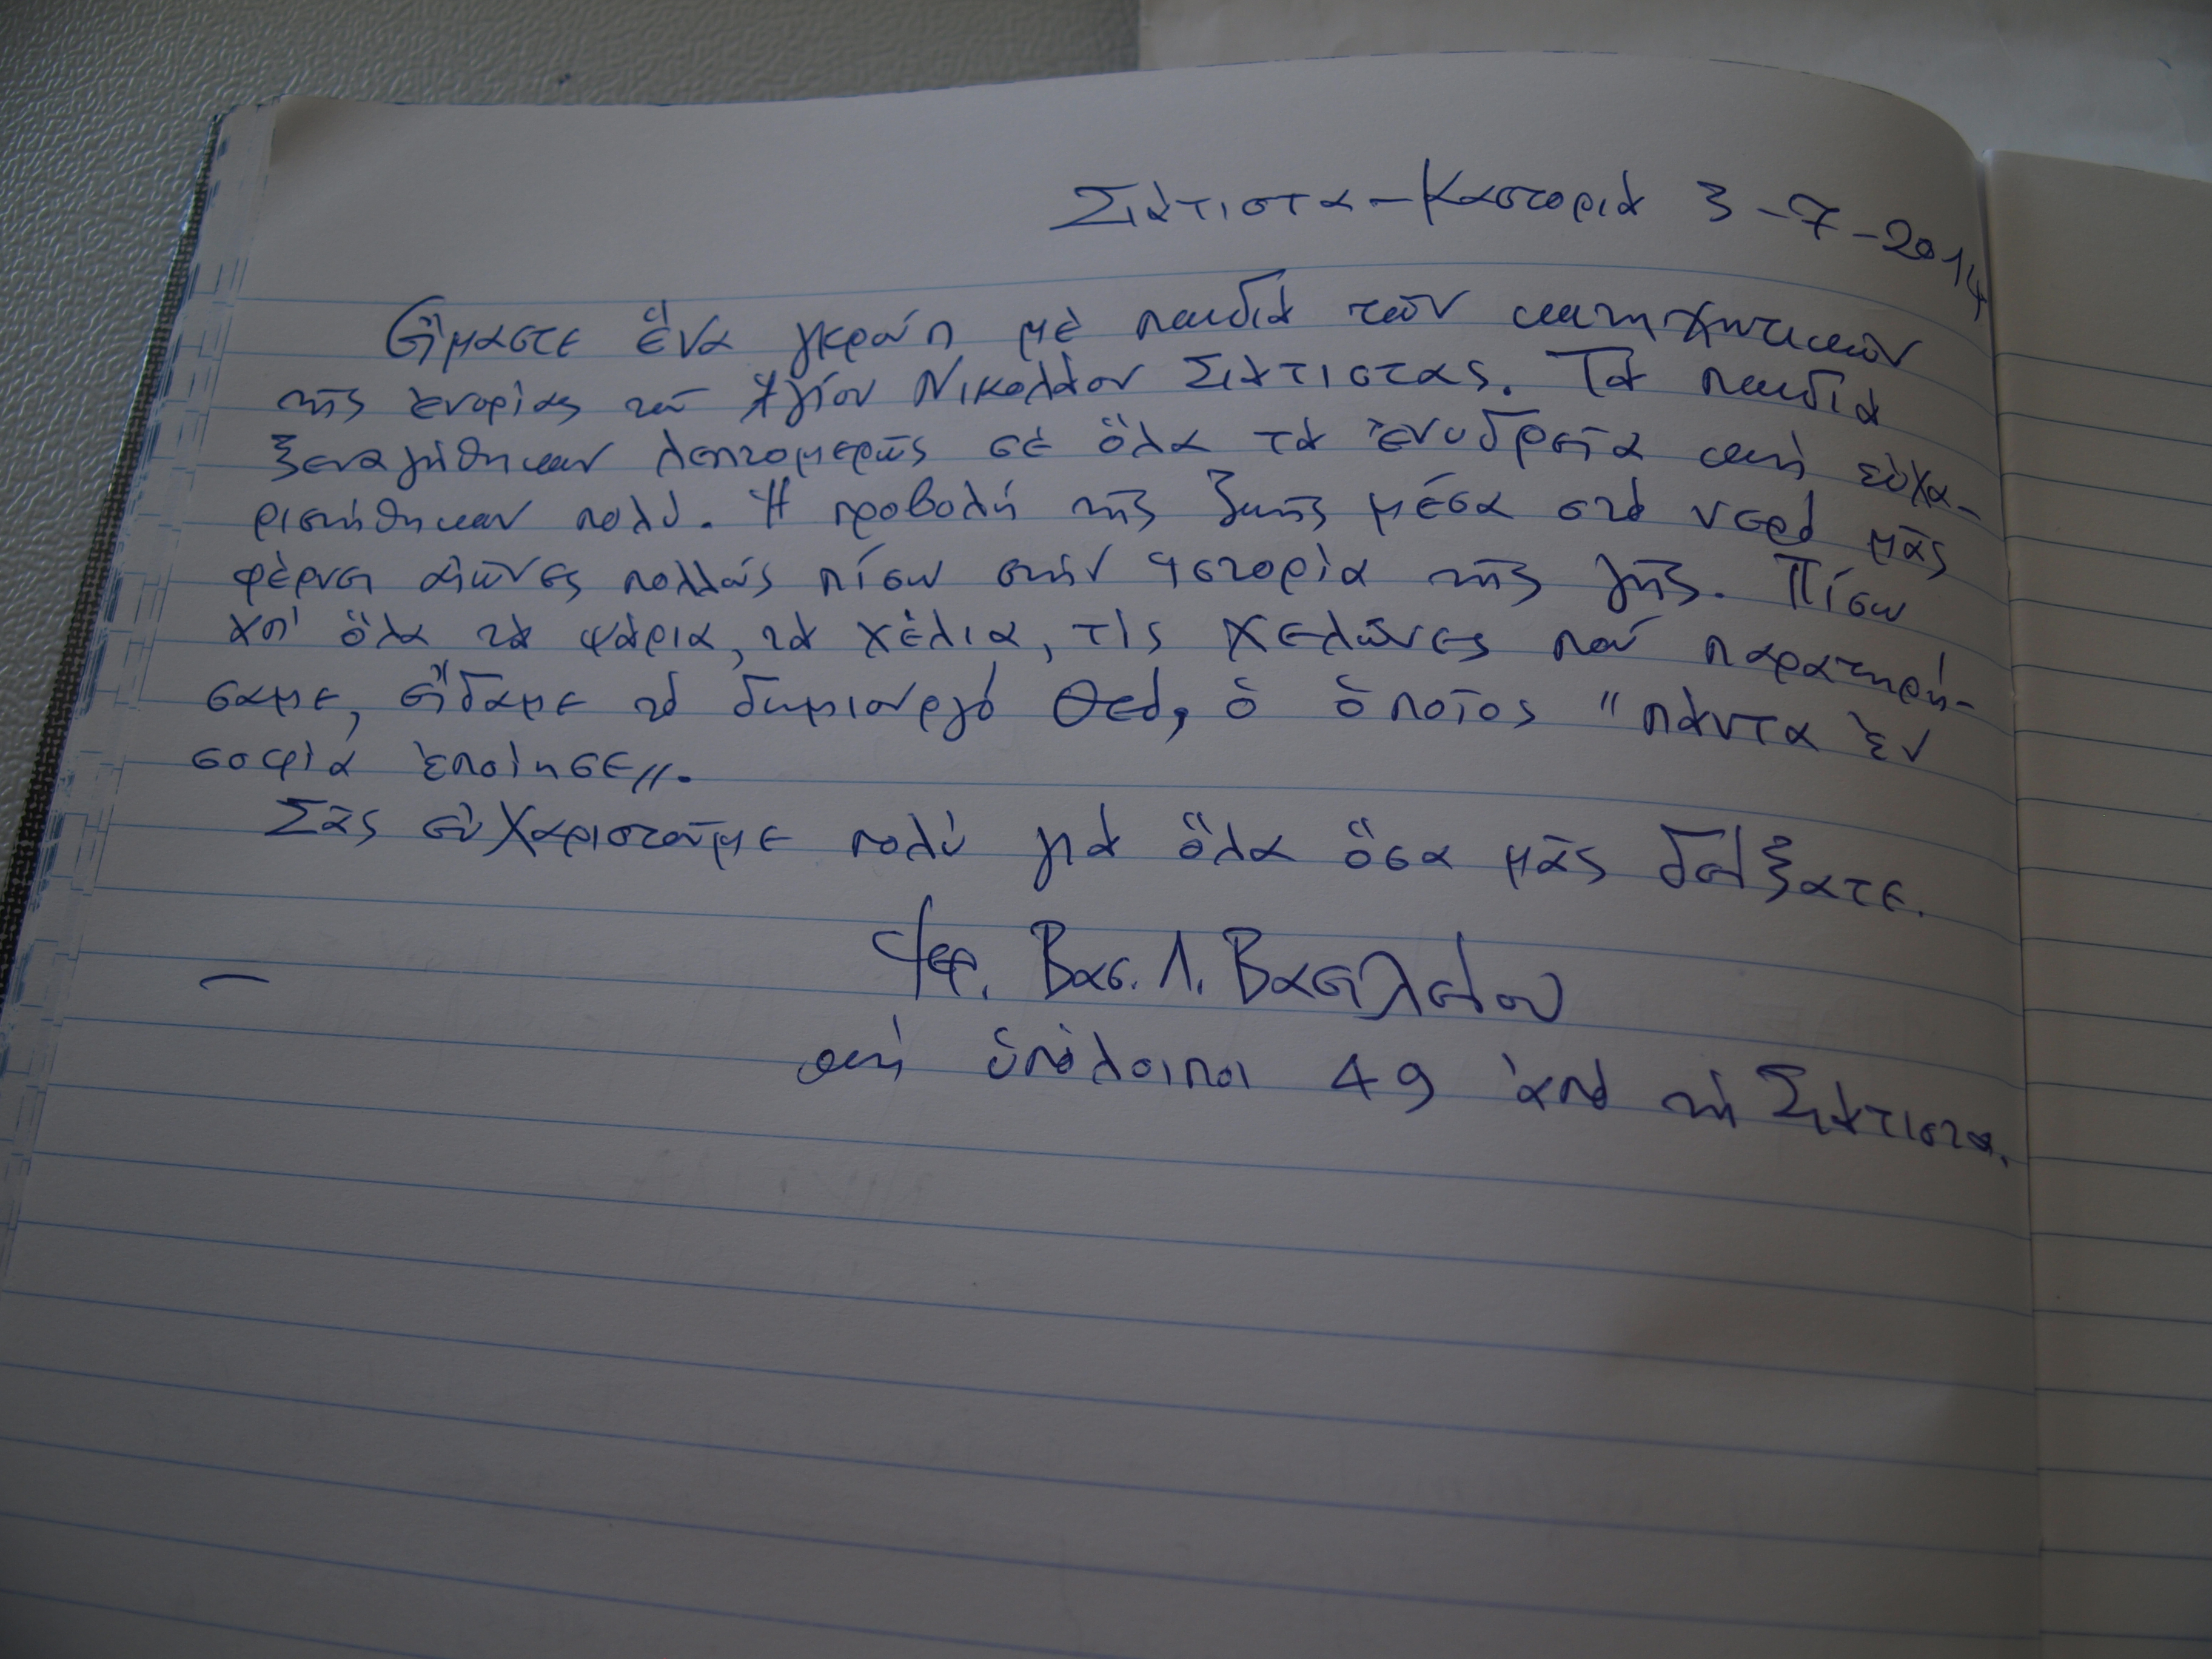 Σιάτιστα - Καστοριά 3-7-2014
Εἴμαστε ἕνα γκρούπ μέ παιδιά τῶν κατηχητικῶν
τῆς ἐνορίας τοῦ Ἁγίου Νικολάου Σιάτιστας. Τά παιδιά
ξεναγήθηκαν λεπτομερῶς σέ ὅλα τά ἐνυδρεῖα καί εὐχα-
ριστήθηκαν πολύ. Ἡ προβολή τῆς ζωῆς μέσα στό νερό μᾶς
φέρνει αἰῶνες πολλούς πίσω στήν ἱστορία τῆς γῆς. Πίσω
ἀπ' ὅλα τά ψάρια, τά χέλια, τίς χελῶνες πού παρατηρή-
σαμε, εἴδαμε τό δημιουργό Θεό, ὁ ὁποῖος "πάντα ἐν
σοφίᾳ ἐποίησε".
Σᾶς εὐχαριστοῦμε πολύ γιά ὅλα ὅσα μᾶς δείξατε.
Ἱερ. Βασ. Λ. Βασιλείου
καί ὑπόλοιποι 49 ἀπό τή Σιάτιστα.